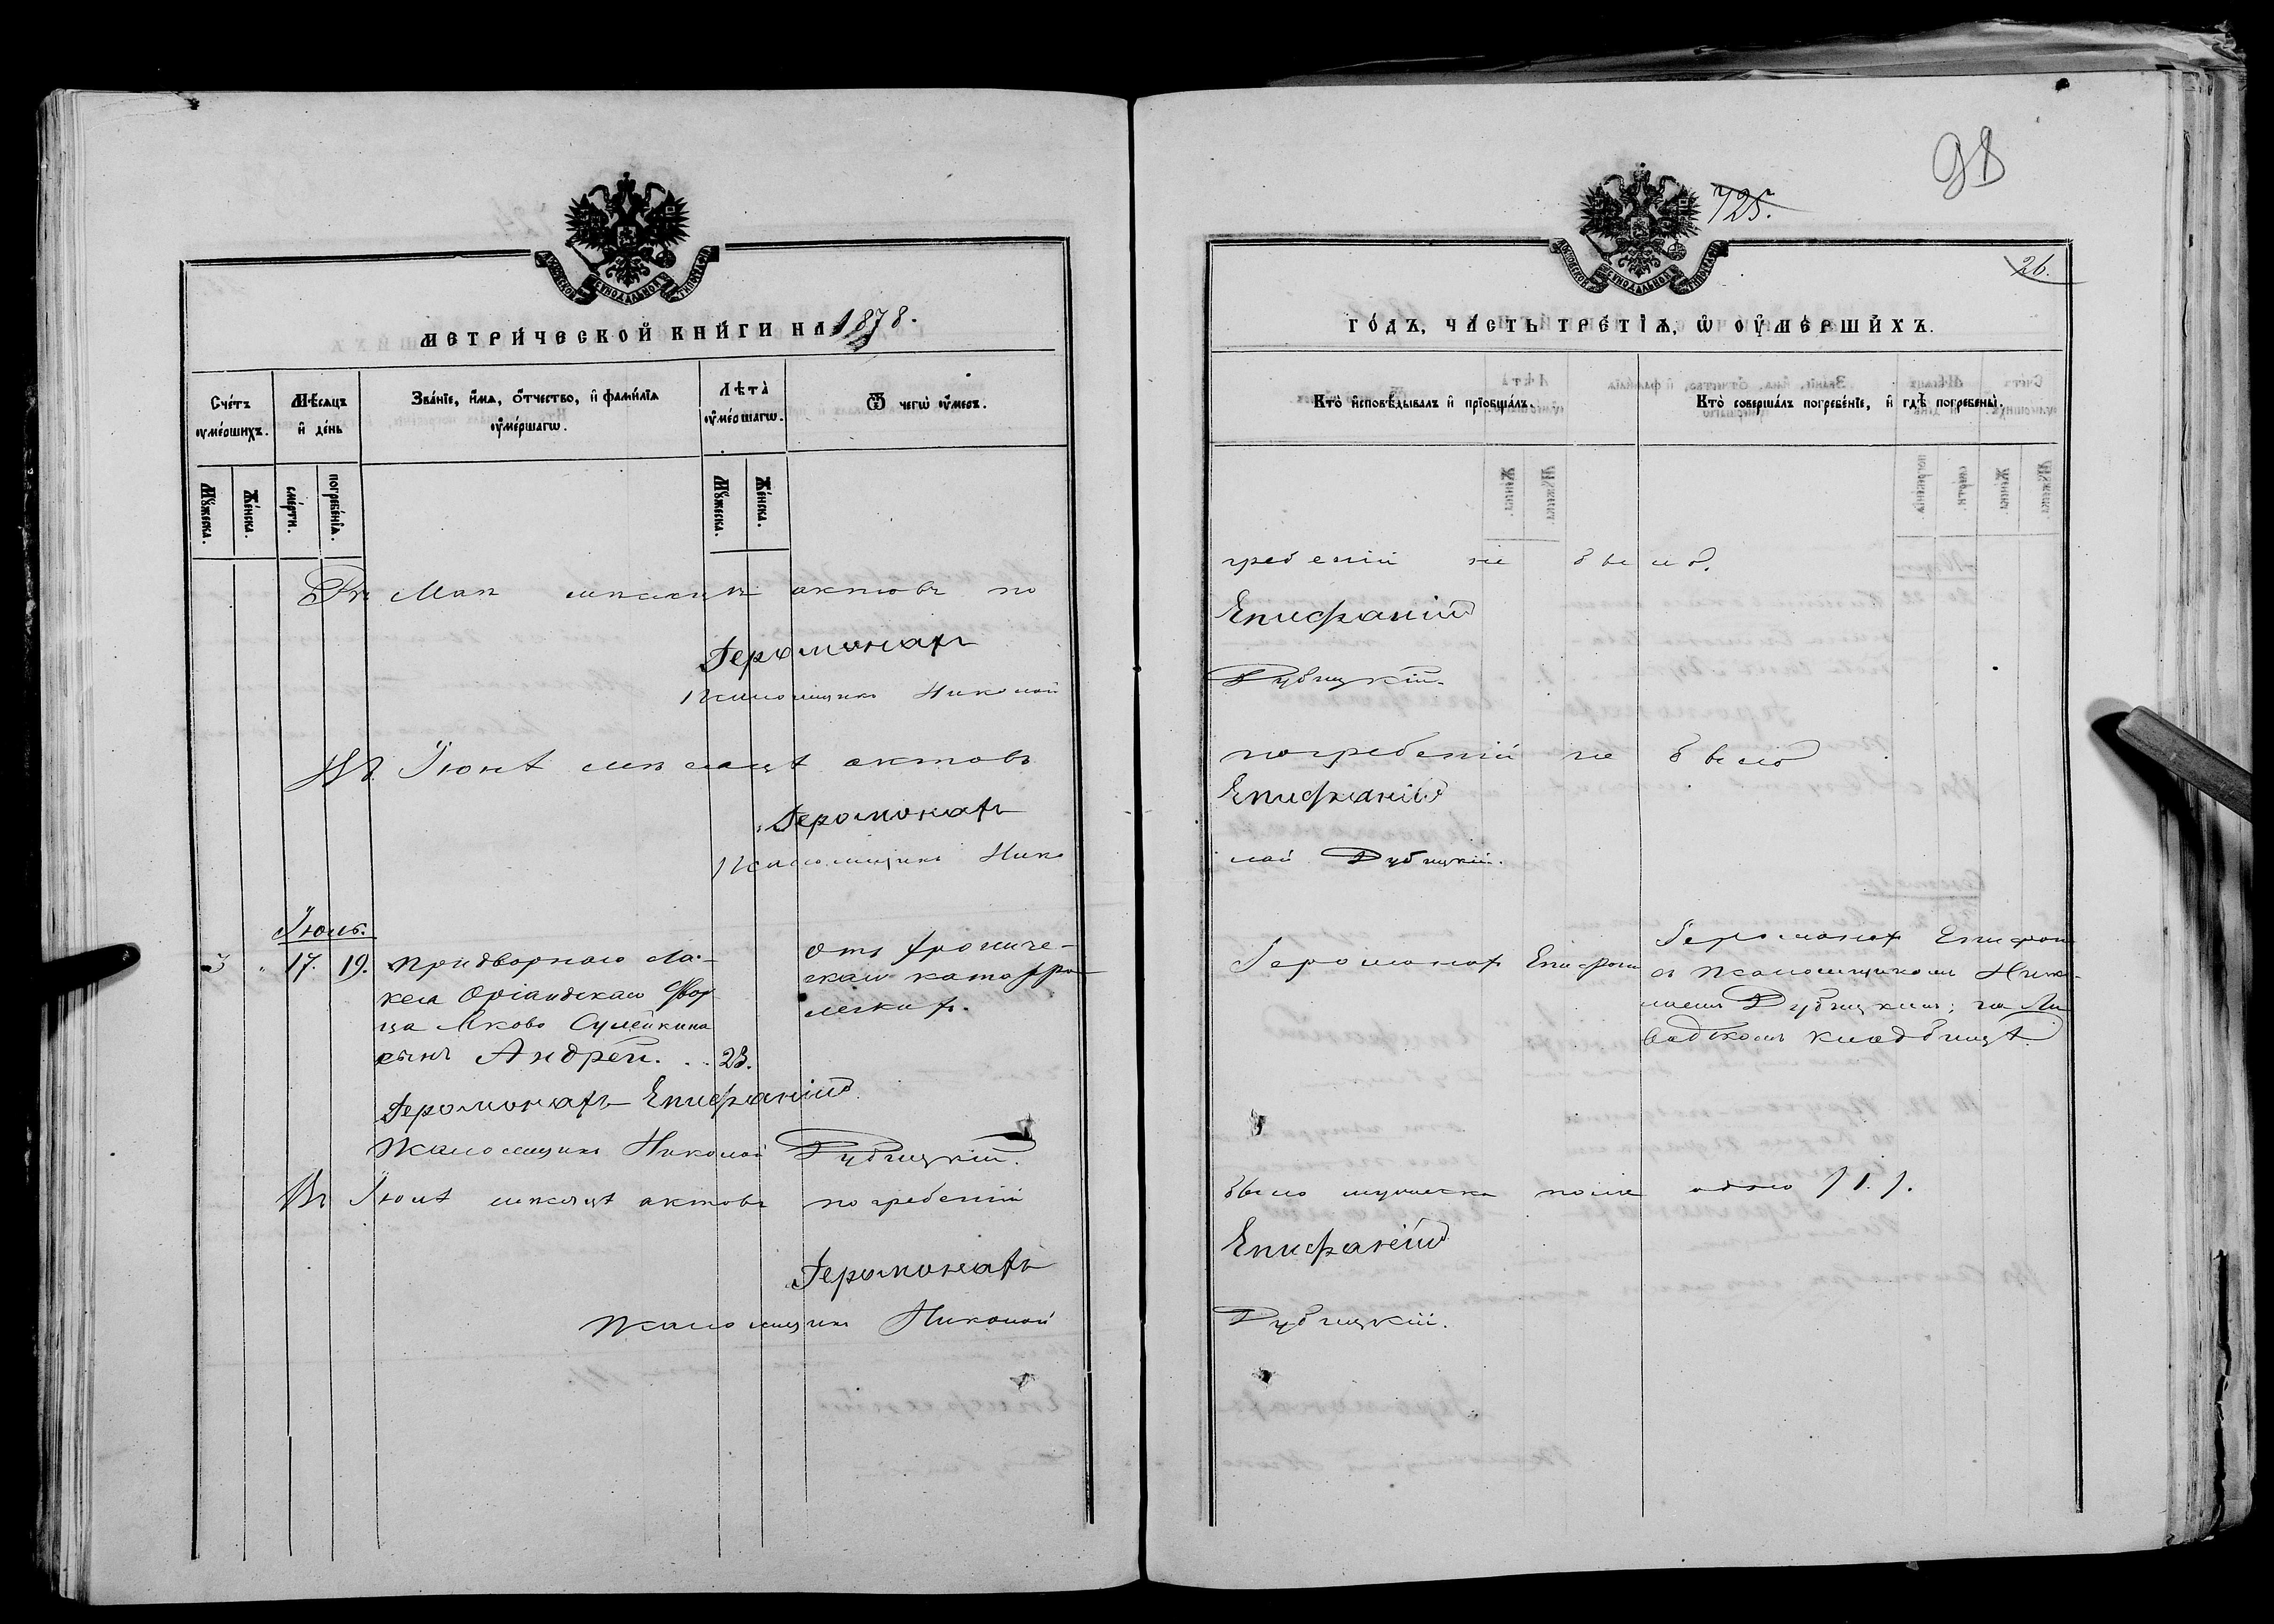 МЕТРИ́ЧЕСКОЙ КНИ́ГИ НА 1878.
Сче́тъ оу҆ме́ршихъ.
Мѣ́сяцъ и҆ де́нь
Зва́нїе, и҆́мя, ѻ҆́тчество, и҆ фами́лїя оу҆ме́ршагѡ.
Лѣ́та оу҆ме́ршагѡ.
Ѿ чегѡ̀ оу҆́меръ.
Мꙋ́жеска.
Же́нска.
сме́рти.
погребе́нїѧ.
Мꙋ́жеска.
Же́нска.
Въ Маѣ мѣсяцѣ актовъ по
Іеромонахъ
Псаломщикъ Николай
Въ Іюнѣ мѣсяцѣ актовъ
Іеромонахъ
Псаломщикъ Нико
Іюль.
3 " 17. 19. Придворнаго Ла-
кея Оріандскаго Двор
ца Якова Сулейкина
сынъ Андрей. . . 23.
отъ хрониче-
скаго катарра
легкихъ.
Іеромонахъ Епифаній
Псаломщикъ Николай Рубицкій.
Въ Іюлѣ мѣсяцѣ актовъ погребеній
Іеромонахъ
Псаломщикъ Николай
МОСКОВСКОЙ СѴНОДАЛЬНОЙ ТИПОГРАФІИ
98
725.
26.
ГО́ДЪ, ЧА́СТЬ ТРЕ́ТЇѦ, Ѡ҆ ОУ҆МЕ́РШИХЪ.
Кто̀ и҆сповѣ́дывалъ и҆ прїѡбща́лъ.
Кто̀ соверша́лъ погребе́нїе, и҆ гдѣ̀ погребены̀.
гребеній не было.
Епифаній
Рубицкій.
погребеній не было
Епифаній
лай Рубицкій.
Іеромонах Епифаній
Іеромонах Епифан
съ Псаломщикомъ Нико-
лаемъ Рубицкимъ; на Ли
вадскомъ кладбищѣ
было мужеска пола одно /1./.
Епифаній
Рубицкій.